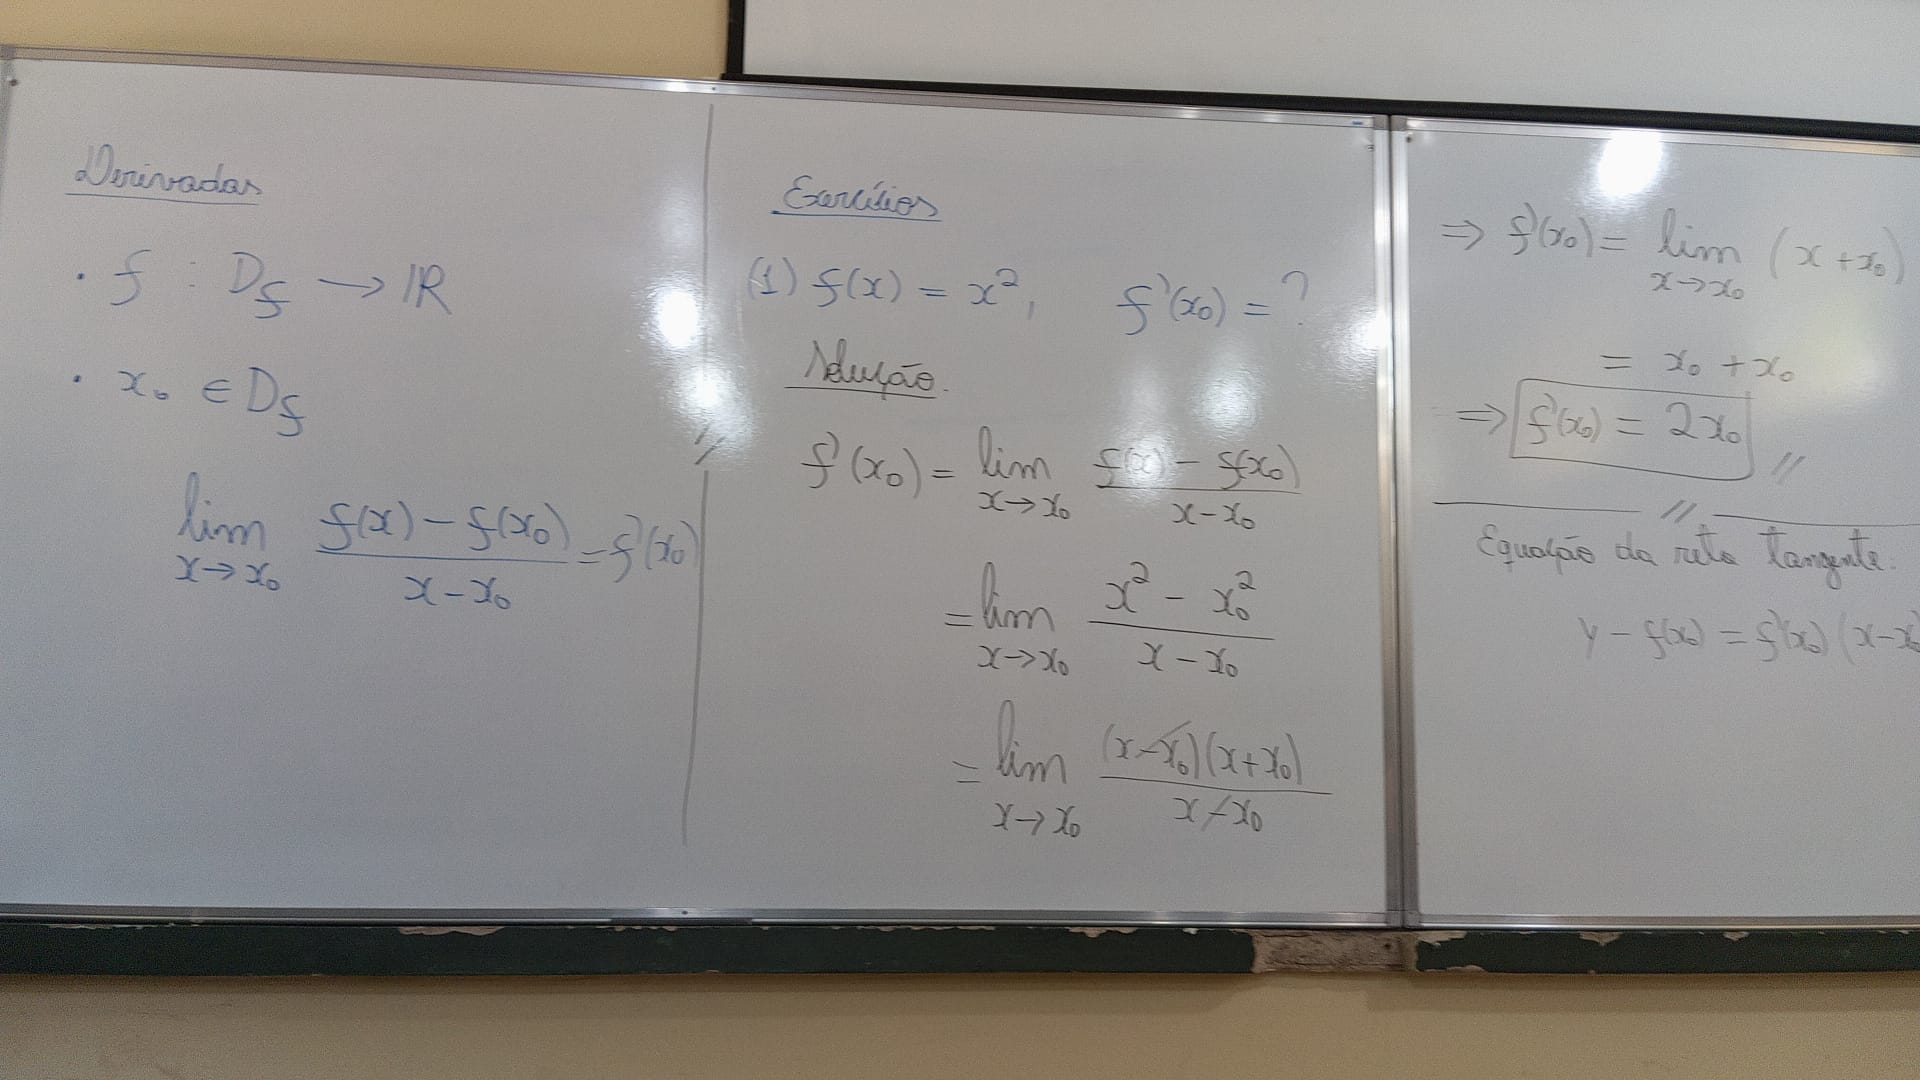 Derivadas
• f : D_f → ℝ
• x₀ ∈ D_f
lim_{x→x₀} (f(x) − f(x₀))/(x − x₀) = f'(x₀)
Exercícios
(1) f(x) = x², f'(x₀) = ?
Solução.
f'(x₀) = lim_{x→x₀} (f(x) − f(x₀))/(x − x₀)
= lim_{x→x₀} (x² − x₀²)/(x − x₀)
= lim_{x→x₀} ((x − x₀)(x + x₀))/(x − x₀)
⇒ f'(x₀) = lim_{x→x₀} (x + x₀)
= x₀ + x₀
⇒ f'(x₀) = 2x₀ //
Equação da reta tangente.
y − f(x₀) = f'(x₀) (x − x₀